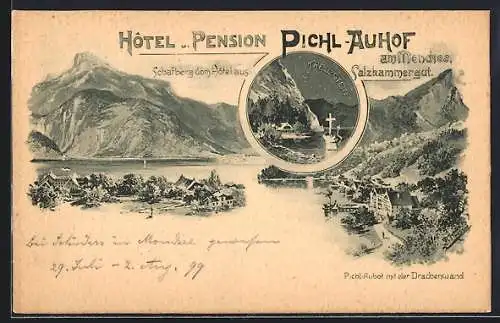 HÔTEL u. PENSION PICHL-AUHOF
am Mondsee,
Salzkammergut.
Schafberg vom Hôtel aus
KREUZSTEIN
Bei Schindlers in Mondsee gewesen
29. Juli - 2. Aug. 99
Pichl-Auhof mit der Drachenwand